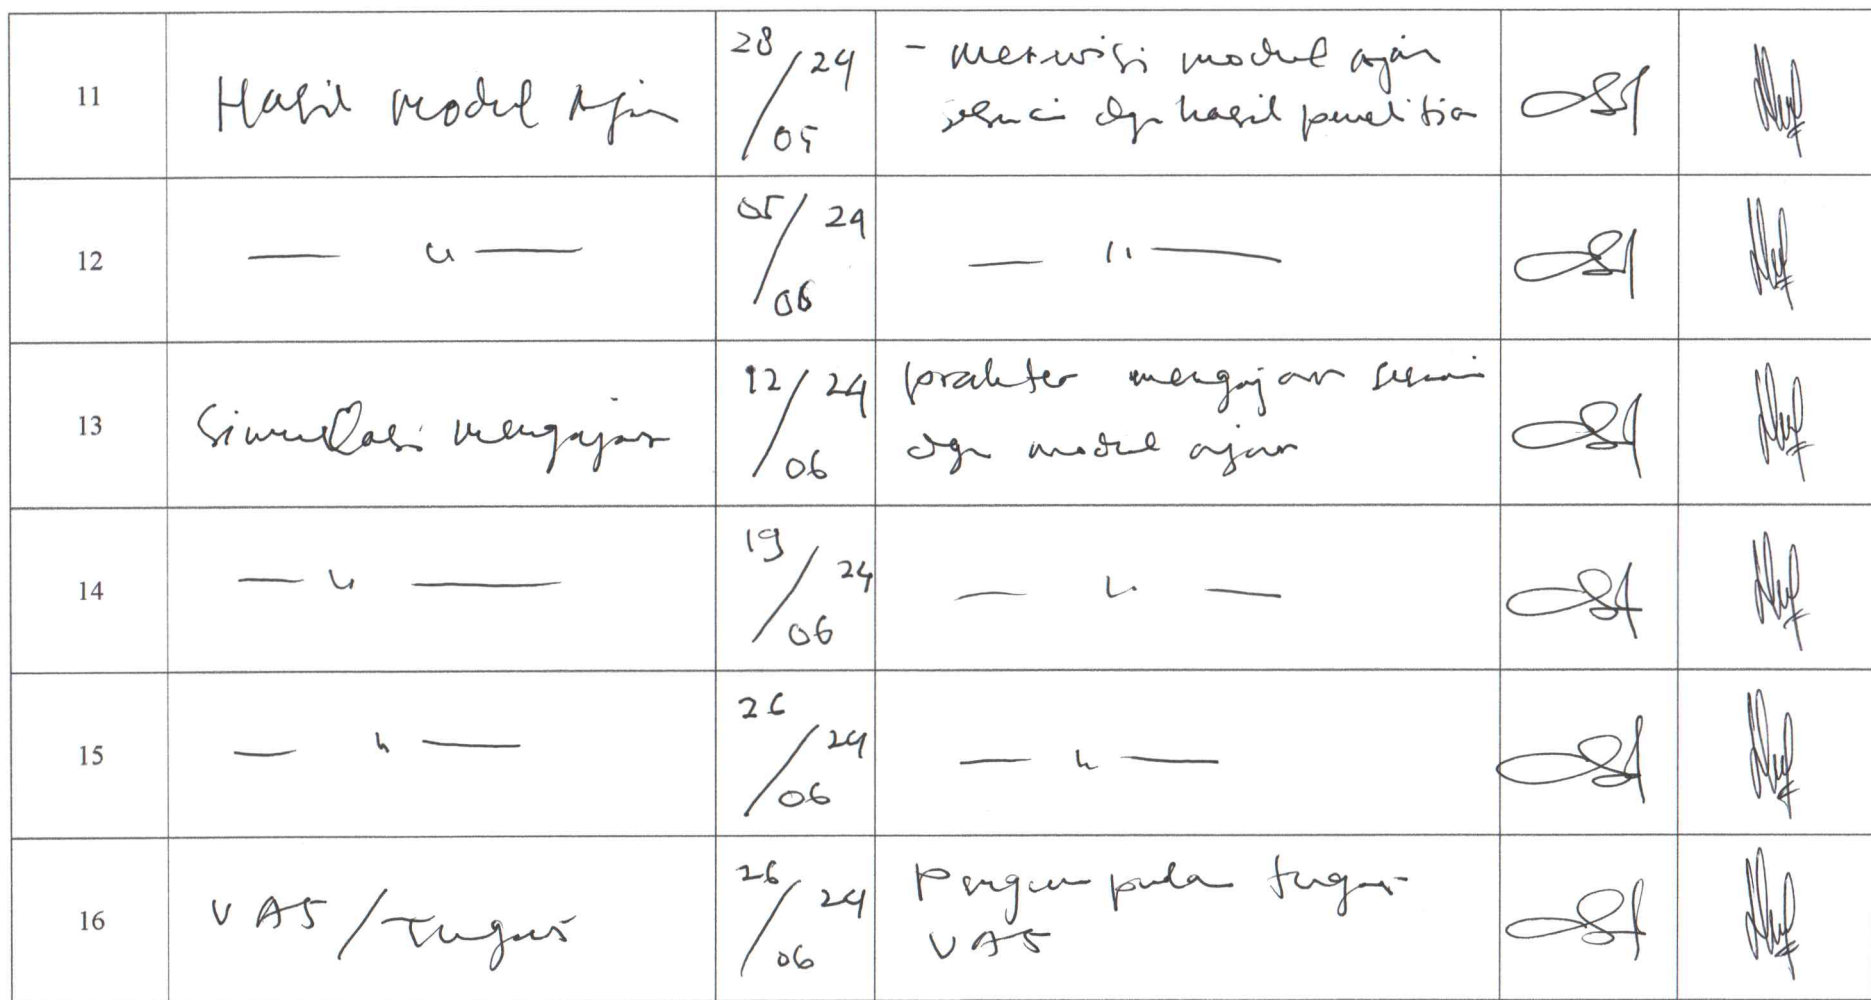 11
Hasil modul Ajar
28/05 24
- merevisi modul ajar
sesuai dgn hasil penelitian
12
— " —
05/06 24
— " —
13
Simulasi mengajar
12/06 24
praktek mengajar sesuai
dgn modul ajar
14
— " —
19/06 24
— " —
15
— " —
26/06 24
— " —
16
UAS / Tugas
26/06 24
Pengumpulan tugas
UAS